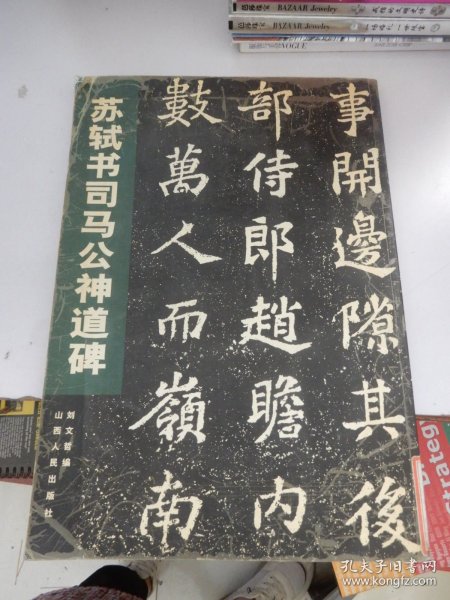 BAZAAR Jewelry
BAZAAR Jewelry
VOGUE
苏轼书司马公神道碑
事開邊隙其後
部侍郎趙瞻内
數萬人而嶺南
刘文哲编
山西人民出版社
Strateg
孔夫子旧书网
www.kongfz.com